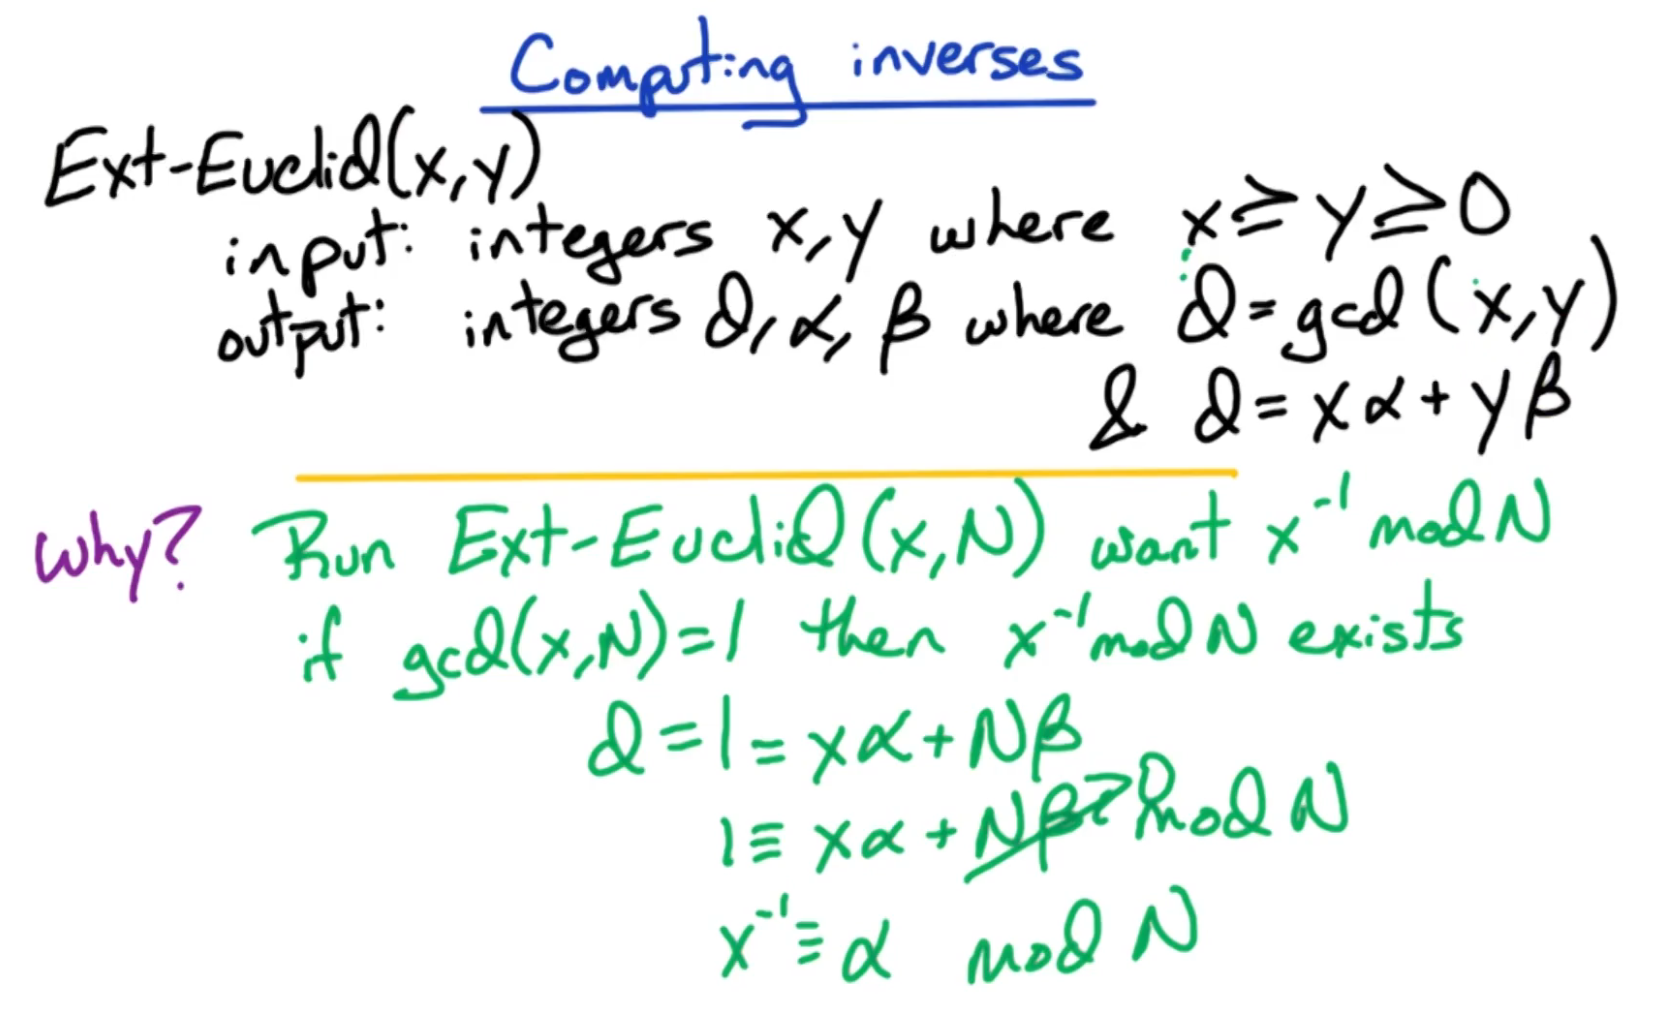 Computing inverses
Ext-Euclid(x,y)
input: integers x,y where x ≥ y ≥ 0
output: integers d, α, β where d = gcd(x,y)
& d = xα + yβ
Why? Run Ext-Euclid(x,N) want x⁻¹ mod N
if gcd(x,N)=1 then x⁻¹ mod N exists
d = 1 = xα + Nβ
1 ≡ xα + Nβ → 0 mod N
x⁻¹ ≡ α mod N